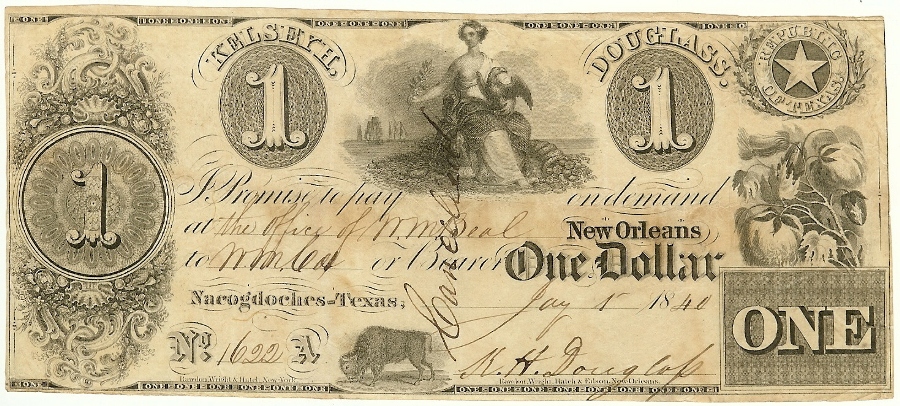 ONE ONE ONE ONE ONE ONE ONE ONE
KELSEY H. DOUGLASS.
1 1 1
REPUBLIC OF TEXAS
I Promise to pay on demand
at the office of W. M. Beal New Orleans
to W.M. or Bearer One Dollar
Nacogdoches-Texas, Jay 1 1840
No. 1622 A
K. H. Douglass
ONE
Rawdon, Wright & Hatch, New York.
Rawdon, Wright, Hatch & Edson, New Orleans.
ONE ONE ONE ONE ONE ONE ONE ONE